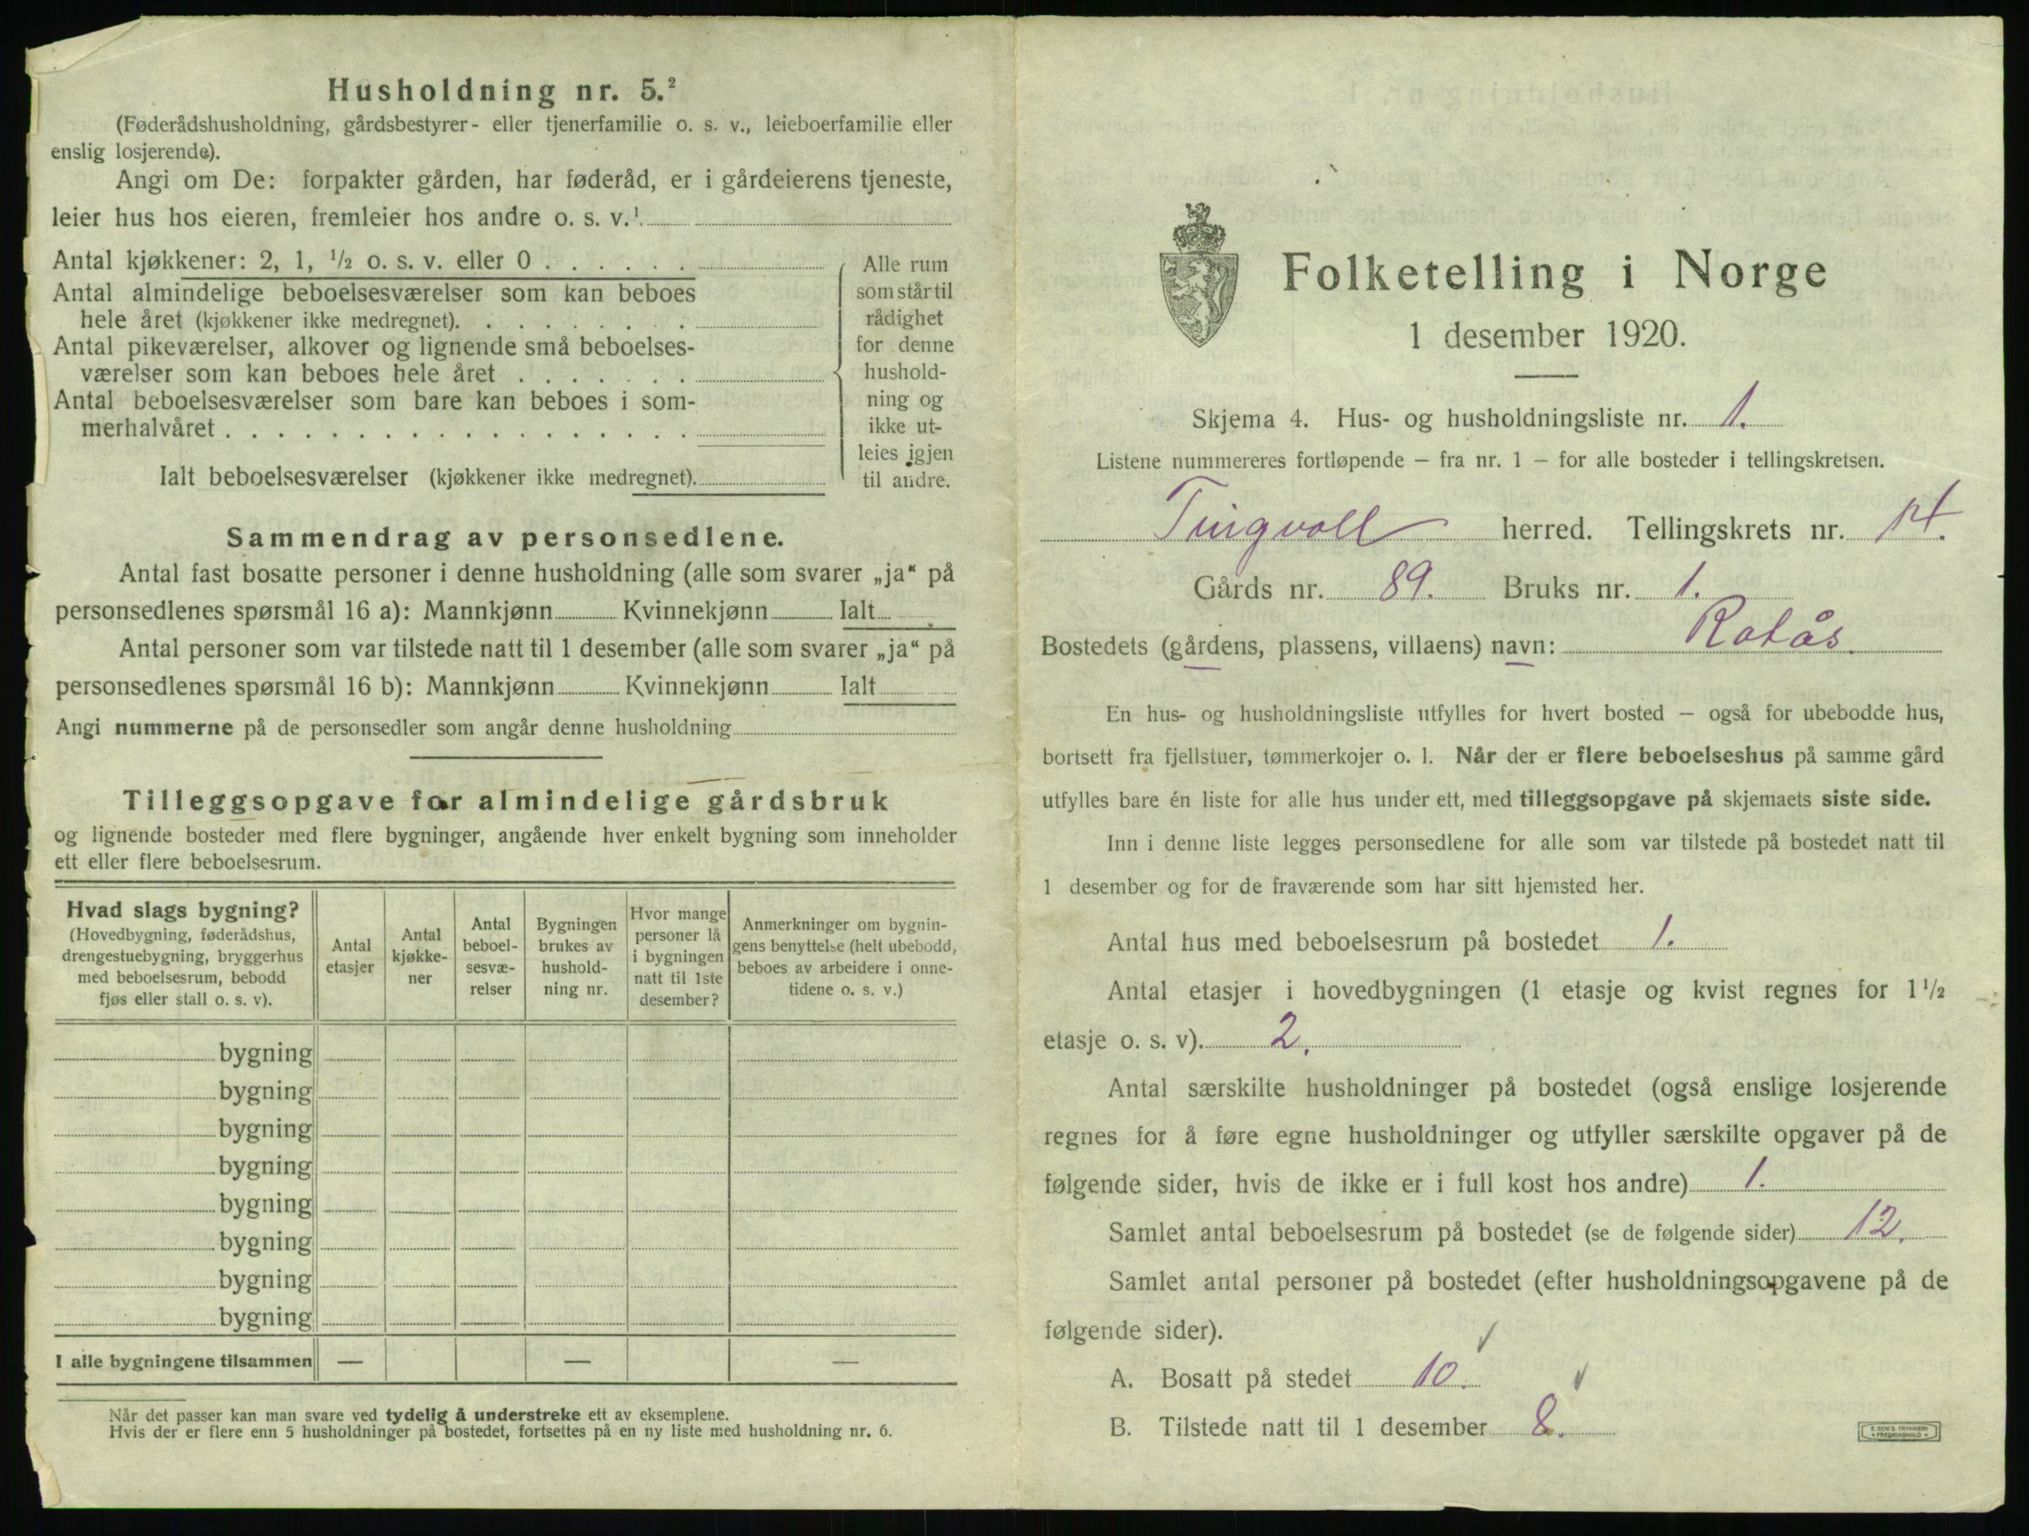 Husholdning nr. 5.²
(Føderådshusholdning, gårdsbestyrer- eller tjenerfamilie o. s. v., leieboerfamilie eller
enslig losjerende).
Angi om De: forpakter gården, har føderåd, er i gårdeierens tjeneste,
leier hus hos eieren, fremleier hos andre o. s. v.¹
Antal kjøkkener: 2, 1, ½ o. s. v. eller 0 . . . . . .
Antal almindelige beboelsesværelser som kan beboes
hele året (kjøkkener ikke medregnet). . . . . . . . .
Antal pikeværelser, alkover og lignende små beboelses-
værelser som kan beboes hele året . . . . . . .
Antal beboelsesværelser som bare kan beboes i som-
merhalvåret . . . . . . . . . . . . . . . . . .
Ialt beboelsesværelser (kjøkkener ikke medregnet).
Alle rum
som står til
rådighet
for denne
hushold-
ning og
ikke ut-
leies igjen
til andre.
Sammendrag av personsedlene.
Antal fast bosatte personer i denne husholdning (alle som svarer „ja“ på
personsedlenes spørsmål 16 a): Mannkjønn Kvinnekjønn Ialt
Antal personer som var tilstede natt til 1 desember (alle som svarer „ja“ på
personsedlenes spørsmål 16 b): Mannkjønn Kvinnekjønn Ialt
Angi nummerne på de personsedler som angår denne husholdning
Tilleggsopgave for almindelige gårdsbruk
og lignende bosteder med flere bygninger, angående hver enkelt bygning som inneholder
ett eller flere beboelsesrum.
Hvad slags bygning?
(Hovedbygning, føderådshus,
drengestuebygning, bryggerhus
med beboelsesrum, bebodd
fjøs eller stall o. s. v).
Antal
etasjer
Antal
kjøkke-
ner
Antal
beboel-
sesvæ-
relser
Bygningen
brukes av
hushold-
ning nr.
Hvor mange
personer lå
i bygningen
natt til 1ste
desember?
Anmerkninger om bygnin-
gens benyttelse (helt ubebodd,
beboes av arbeidere i onne-
tidene o. s. v.)
bygning
bygning
bygning
bygning
bygning
bygning
bygning
bygning
I alle bygningene tilsammen — — —
Når det passer kan man svare ved tydelig å understreke ett av eksemplene.
Hvis der er flere enn 5 husholdninger på bostedet, fortsettes på en ny liste med husholdning nr. 6.
Folketelling i Norge
1 desember 1920.
Skjema 4. Hus- og husholdningsliste nr. 1.
Listene nummereres fortløpende — fra nr. 1 — for alle bosteder i tellingskretsen.
Tingvoll herred. Tellingskrets nr. 14.
Gårds nr. 89. Bruks nr. 1.
Bostedets (gårdens, plassens, villaens) navn: Rotås.
En hus- og husholdningsliste utfylles for hvert bosted — også for ubebodde hus,
bortsett fra fjellstuer, tømmerkojer o. l. Når der er flere beboelseshus på samme gård
utfylles bare én liste for alle hus under ett, med tilleggsopgave på skjemaets siste side.
Inn i denne liste legges personsedlene for alle som var tilstede på bostedet natt til
1 desember og for de fraværende som har sitt hjemsted her.
Antal hus med beboelsesrum på bostedet 1.
Antal etasjer i hovedbygningen (1 etasje og kvist regnes for 1½
etasje o. s. v). 2.
Antal særskilte husholdninger på bostedet (også enslige losjerende
regnes for å føre egne husholdninger og utfyller særskilte opgaver på de
følgende sider, hvis de ikke er i full kost hos andre) 1.
Samlet antal beboelsesrum på bostedet (se de følgende sider) 12.
Samlet antal personer på bostedet (efter husholdningsopgavene på de
følgende sider).
A. Bosatt på stedet 10.
B. Tilstede natt til 1 desember 8.